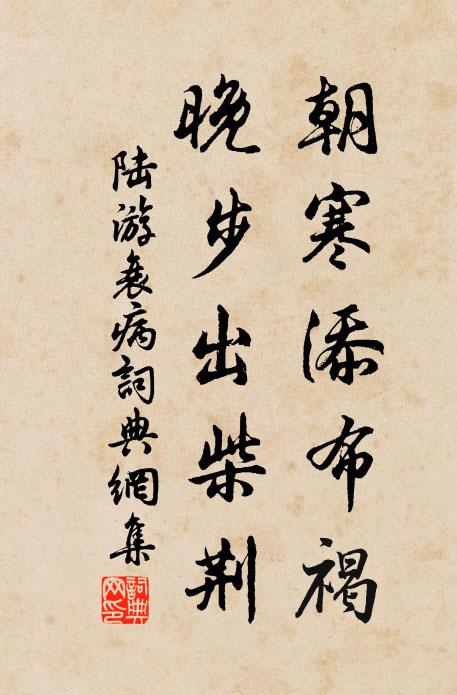 朝寒添布褐
晚步出柴荆
陆游衰病詞典網集
詞典
网印